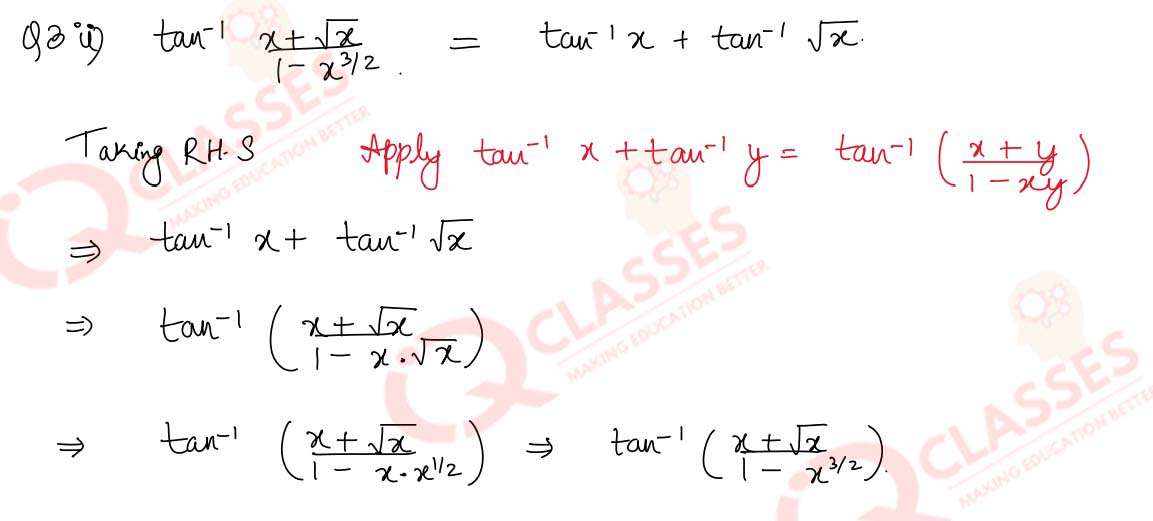 Q3 ii) tan⁻¹ (x + √x)/(1 - x^3/2) = tan⁻¹ x + tan⁻¹ √x.
Taking R.H.S Apply tan⁻¹ x + tan⁻¹ y = tan⁻¹ ((x + y)/(1 - xy))
⇒ tan⁻¹ x + tan⁻¹ √x
⇒ tan⁻¹ ((x + √x)/(1 - x.√x))
⇒ tan⁻¹ ((x + √x)/(1 - x.x^1/2)) ⇒ tan⁻¹ ((x + √x)/(1 - x^3/2)).
iQ CLASSES
MAKING EDUCATION BETTER
iQ CLASSES
MAKING EDUCATION BETTER
iQ CLASSES
MAKING EDUCATION BETTER